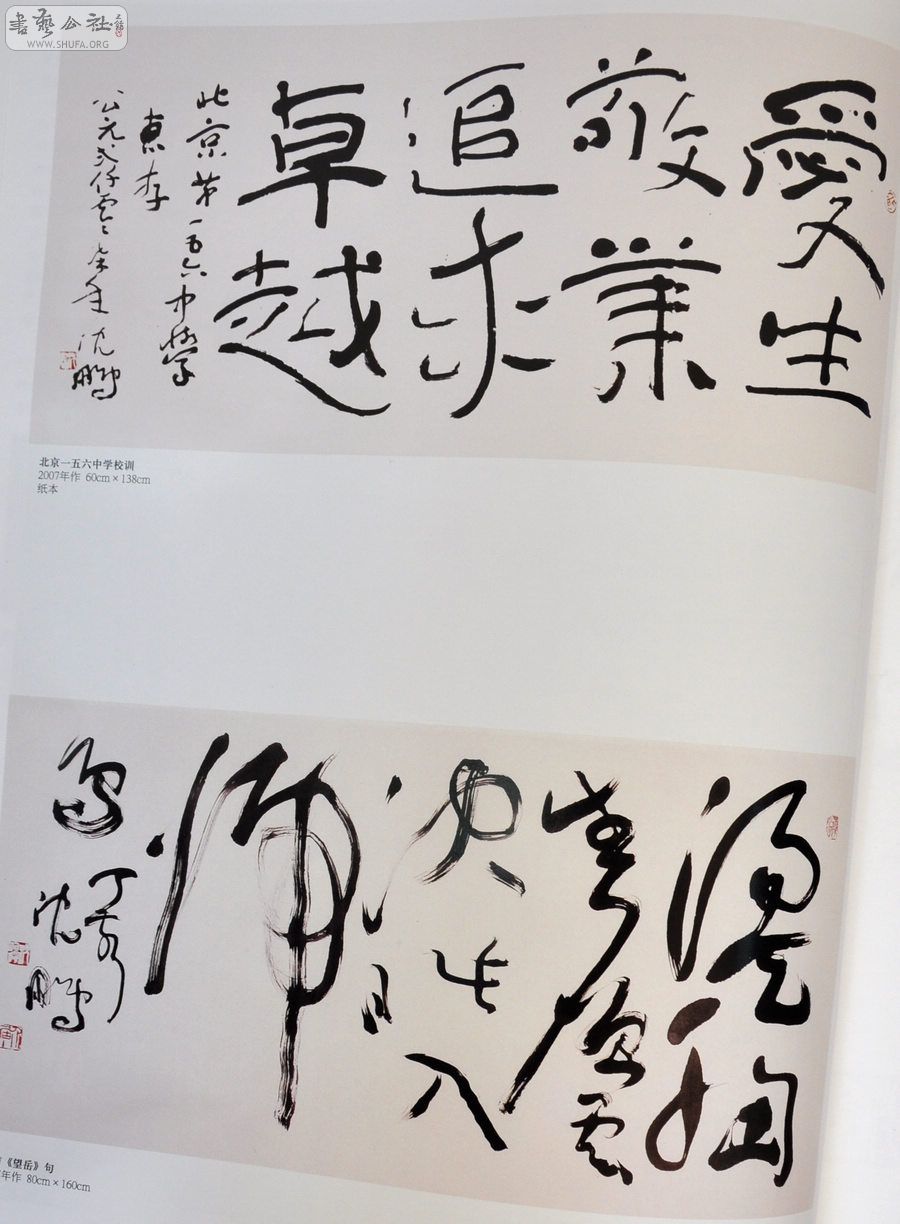 書藝公社
WWW.SHUFA.ORG
愛生
敬業
追求
卓越
北京第一五六中学
惠存
公元弍仟零零柒年 沈鵬
北京一五六中学校训
2007年作 60cm×138cm
纸本
盪胸
生層雲
決眥入
歸
鳥 丁亥
沈鵬
《望岳》句
年作 80cm×160cm